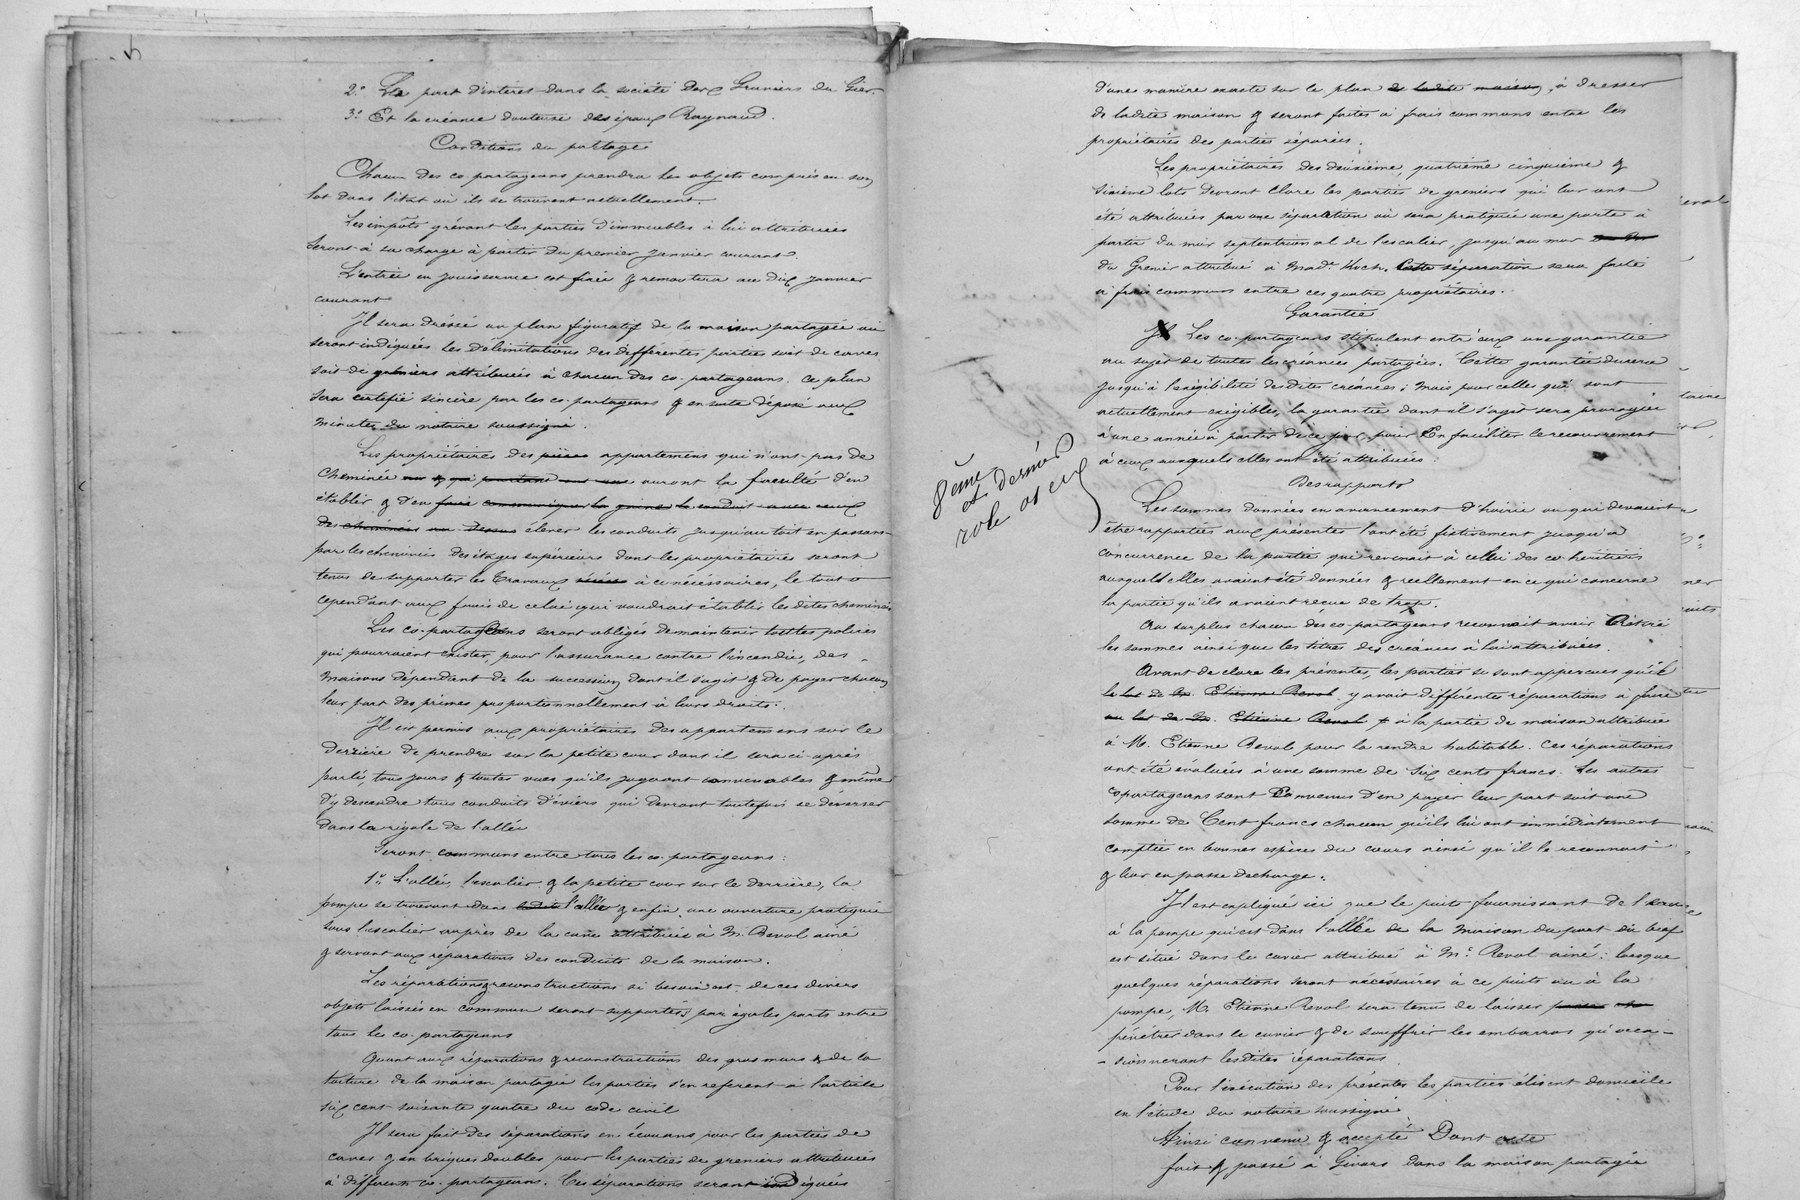 2.° La part d'intérêt dans la société des Gruniers du Gier.
3.° Et la créance douteuse des époux Raynaud.
Conditions du partage
Chacun des co-partageans prendra les objets compris en son
lot dans l'état où ils se trouvent actuellement.
Les impôts grévant les parties d'immeubles à lui attribuées
seront à sa charge à partir du premier Janvier courant.
L'entrée en jouissance est fixée & remontera au dix Janvier
courant
Il sera dréssé un plan figuratif de la maison partagée où
seront indiquées les délimitations des différentes parties soit de caves
soit de greniers attribuées à chacun des co-partageans. Ce plan
sera certifié sincère par les co-partageans & ensuite déposé aux
minutes du notaire soussigné.
Les propriétaires des pièces appartemens qui n'ont pas de
cheminée auront la faculté d'en
établir & d'en faire communiquer le conduit avec ceux
de cheminées au dessus élever les conduits jusqu'au toit en passant
par les cheminées des étages supérieurs dont les propriétaires seront
tenus de supporter les travaux à ce nécessaires, le tout
cependant aux frais de celui qui voudrait établir les dites cheminées
Les co-partageans seront obligés de maintenir toutes polices
qui pourraient exister, pour l'assurance contre l'incendie, des
maisons dépendant de la succession dont il s'agit & de payer chacun
leur part des primes proportionnellement à leurs droits.
Il est permis aux propriétaires des appartemens sur le
derrière de prendre sur la petite cour dont il sera ci-après
parlé, tous jours & toutes vues qu'ils jugeront convenables & même
d'y descendre tous conduits d'éviers qui devront toutefois se déverser
dans la rigole de l'allée
Seront communs entre tous les co-partageans:
1° L'allée, l'escalier & la petite cour sur le derrière, la
pompe se trouvant dans ladite l'allée & enfin une ouverture pratiquée
sous l'escalier auprès de la cave attribuée à M. Revol ainé
& servant aux réparations des conduits de la maison.
Les réparations & reconstructions si besoin est de ces divers
objets laissés en commun seront supportés par égales parts entre
tous les co-partageans
Quant aux réparations & reconstructions des gros murs & de la
toiture de la maison partagée les parties s'en réferent à l'article
six cent soixante quatre du code civil
Il sera fait des séparations en écouans pour les parties de
caves & en briques doubles pour les parties de greniers attribuées
à différens co-partageans. Ces séparations seront indiquées
8ème
et dernier
rôle
d'une manière exacte sur le plan de ladite maison, à dresser
de ladite maison & seront faites à frais communs entre les
propriétaires des parties séparées.
Les propriétaires des deuxième, quatrième cinquième &
sixième lots devront clore les parties de greniers qui leur ont
été attribuées par une séparation où sera pratiquée une porte à
partir du mur septentrional de l'escalier, jusqu'au mur
du Grenier attribué à Made. Koch. Cette séparation sera faite
à frais communs entre ces quatre propriétaires.
Garantie
Les co-partageans stipulent entr'eux une garantie
au sujet de toutes les créances partagées. Cette garantie durera
jusqu'à l'exigibilité desdites créances; mais pour celles qui sont
actuellement exigibles, la garantie dont il s'agit sera prorogée
à une année à partir de ce jour, pour en faciliter le recouvrement
à ceux auxquels elles ont été attribuées
Des rapports
Les sommes données en avancement d'hoirie ou qui devaient
être rapportées aux présentes l'ont été fictivement jusqu'à
concurrence de la partie qui revenait à celui des co-héritiers
auxquels elles avaient été données & réellement en ce qui concerne
la partie qu'ils avaient reçue de trop.
Au surplus chacun des co-partageans reconnait avoir retiré
les sommes ainsi que les titres des créances à lui attribuées.
Avant de clore les présentes, les parties se sont apperçues qu'il
le lot de M. Etienne Revol y avait différentes réparations à faire
au lot de M. Etienne Revol à la partie de maison attribuée
à M. Etienne Revol pour la rendre habitable. Ces réparations
ont été évaluées à une somme de six cents francs. Les autres
copartageans sont convenus d'en payer leur part soit une
somme de Cent francs chacun qu'ils lui ont immédiatement
comptée en bonnes espèces du cours ainsi qu'il le reconnait
& leur en passe décharge.
Il est expliqué ici que le puits fournissant de l'eau
à la pompe qui est dans l'allée de la maison du port du bief
est situé dans le cuvier attribué à Mr. Revol ainé: lorsque
quelques réparations seront nécessaires à ce puits ou à la
pompe, M. Etienne Revol sera tenu de laisser
pénétrer dans le cuvier & de souffrir les embarras qu'occa-
-sionneront lesdites réparations
Pour l'exécution des présentes les parties élisent domicile
en l'étude du notaire soussigné
Ainsi convenu & accepté Dont acte
fait & passé à Givors dans la maison partagée